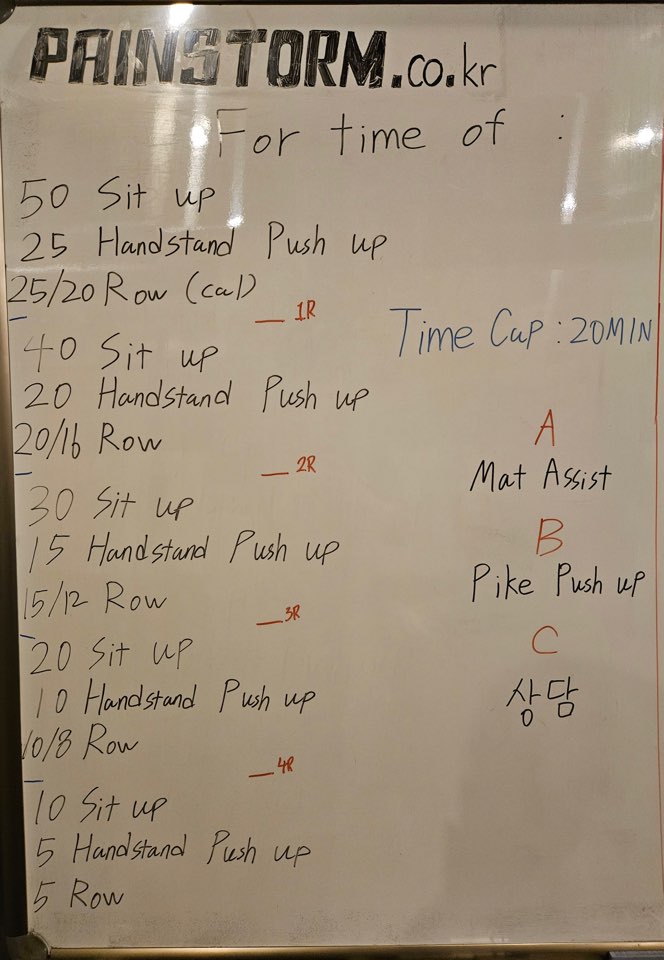 PAINSTORM.co.kr
For time of :
50 Sit up
25 Handstand Push up
25/20 Row (cal)
1R
40 Sit up
20 Handstand Push up
20/16 Row
2R
30 Sit up
15 Handstand Push up
15/12 Row
3R
20 Sit up
10 Handstand Push up
10/8 Row
4R
10 Sit up
5 Handstand Push up
5 Row
Time Cap : 20MIN
A
Mat Assist
B
Pike Push up
C
상담